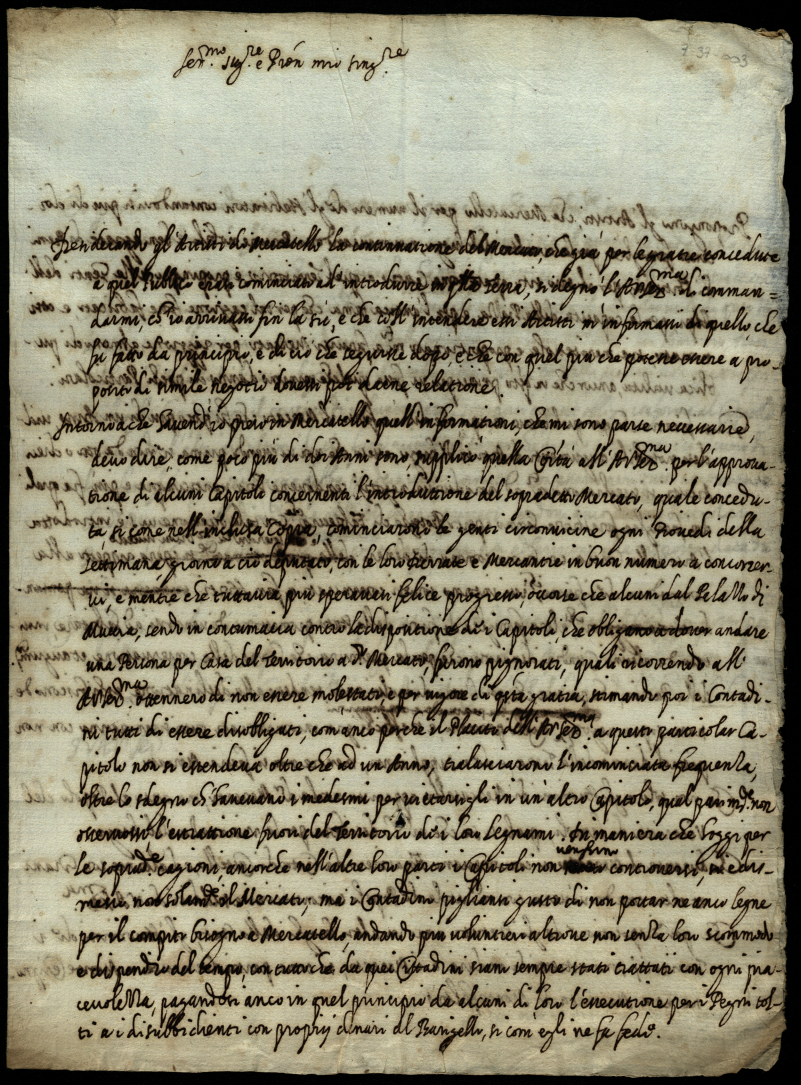 Ser.mo Sig.re e Pron mio sing.re
7-37-003
Pretendendo gl'Artisti di Mercatello la continuatione del Mercato, che già per le gratie concedute
a quel Publico erasi cominciato ad introdurre in q.lla Terra, si degnò l'A.V.Ser.ma di comman=
darmi, ch'io arrivassi fin la sù, e che coll'intendere essi Artisti m'informassi di quello, che
fù fatto da principio, e di ciò che seguisse dopò, e che con quel più che potesse essere a pro-
posito di simile negotio dovessi poi darne relatione.
Intorno a che havend'io preso in Mercatello quelle informationi, che mi sono parse necessarie,
devo dire, come poco più di doi Anni sono supplicò quella Co'ità all'A.V.Ser.ma per l'approva-
tione di alcuni Capitoli concernenti l'introduttione del sopradetto Mercato, quale concedu-
ta si come nell'inclusa Copia, cominciarono le genti circonvicine ogni Giovedì della
Settimana, giorno a ciò deputato, con le loro Merci e Mercantie in buon numero a concorrer-
vi, e mentre che tuttavia più speravasi felice progresso, occorse che alcuni dal Palazzo di
Mucia, sendo in contumacia contro la dispositione di i Capitoli, che obligano a dover andare
una Persona per Casa del Territorio a d.o Mercato, furono pignorati, quali ricorrendo all'
A.V.Ser.ma ottennero di non essere molestati, e per vigore di q.sta gratia, stimando poi i Contadi-
ni tutti di essere disobligati, com'anco perche il Placito dell'A.V.Ser.ma a questo particolar Ca-
pitolo non si estendeva oltre che ad un Anno, tralasciarono l'incominciata frequenza,
oltre lo sdegno ch'havevano i medesmi per vietarsegli in un altro Capitolo, qual pari m.te non
osservossi, l'estrattione fuori del Territorio de i loro Legnami. In maniera che hoggi per
le soprad.e cagioni, ancorche nell'altre loro parti i Capitoli non venghin controversi, si è dis-
messo non solam.te il Mercato; ma i Contadini pigliansi gusto di non portar ne anco legne
per il compito bisogno a Mercatello, andando più voluntieri altrove non senza loro scommodo
e dispendio del tempo, con tutto che da quei Cittadini siano sempre stati trattati con ogni pia-
cevolezza, pagandosi anco in quel principio da alcuni di loro l'essecutione per i Pegni tol-
ti a i disubbidienti con proprij denari al Barigello, si com'egli ne fa fede.